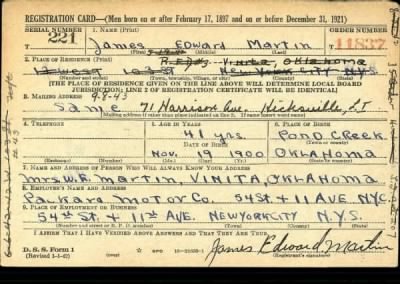 REGISTRATION CARD—(Men born on or after February 17, 1897 and on or before December 31, 1921)
SERIAL NUMBER 1. NAME (Print) ORDER NUMBER
221 James Edward Martin 11837
(First) (Middle) (Last)
2. PLACE OF RESIDENCE (Print)
R.F.D. Vinita, Oklahoma
12 West 103 St New York City N.Y.
(Number and street) (Town, township, village, or city) (County) (State)
[THE PLACE OF RESIDENCE GIVEN ON THE LINE ABOVE WILL DETERMINE LOCAL BOARD
JURISDICTION; LINE 2 OF REGISTRATION CERTIFICATE WILL BE IDENTICAL]
3. MAILING ADDRESS 9-8-43
Same 71 Harrison Ave. Hicksville, L I
4. TELEPHONE 5. AGE IN YEARS 6. PLACE OF BIRTH
41 yrs. Pond Creek
DATE OF BIRTH (Town or county)
Nov. 19 1900 Oklahoma
(Mo.) (Day) (Yr.) (State or country)
7. NAME AND ADDRESS OF PERSON WHO WILL ALWAYS KNOW YOUR ADDRESS
Mrs W.B. Martin, Vinita, Oklahoma
8. EMPLOYER'S NAME AND ADDRESS
Packard Motor Co. 54 St + 11 Ave. N.Y.C.
9. PLACE OF EMPLOYMENT OR BUSINESS
54th St. + 11th Ave. New York City N.Y.S.
(Number and street or R. F. D. number) (Town) (County) (State)
I AFFIRM THAT I HAVE VERIFIED ABOVE ANSWERS AND THAT THEY ARE TRUE.
D. S. S. Form 1 GPO James Edward Martin
(Revised 1-1-42) (over) (Registrant's signature)